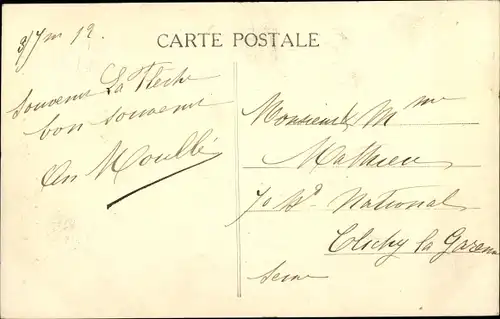 CARTE POSTALE
Souvenir La Fleche
bon souvenir
Moullé
Monsieur & Mme
Mathieu
70 Bd National
Clichy la Garenne
Seine